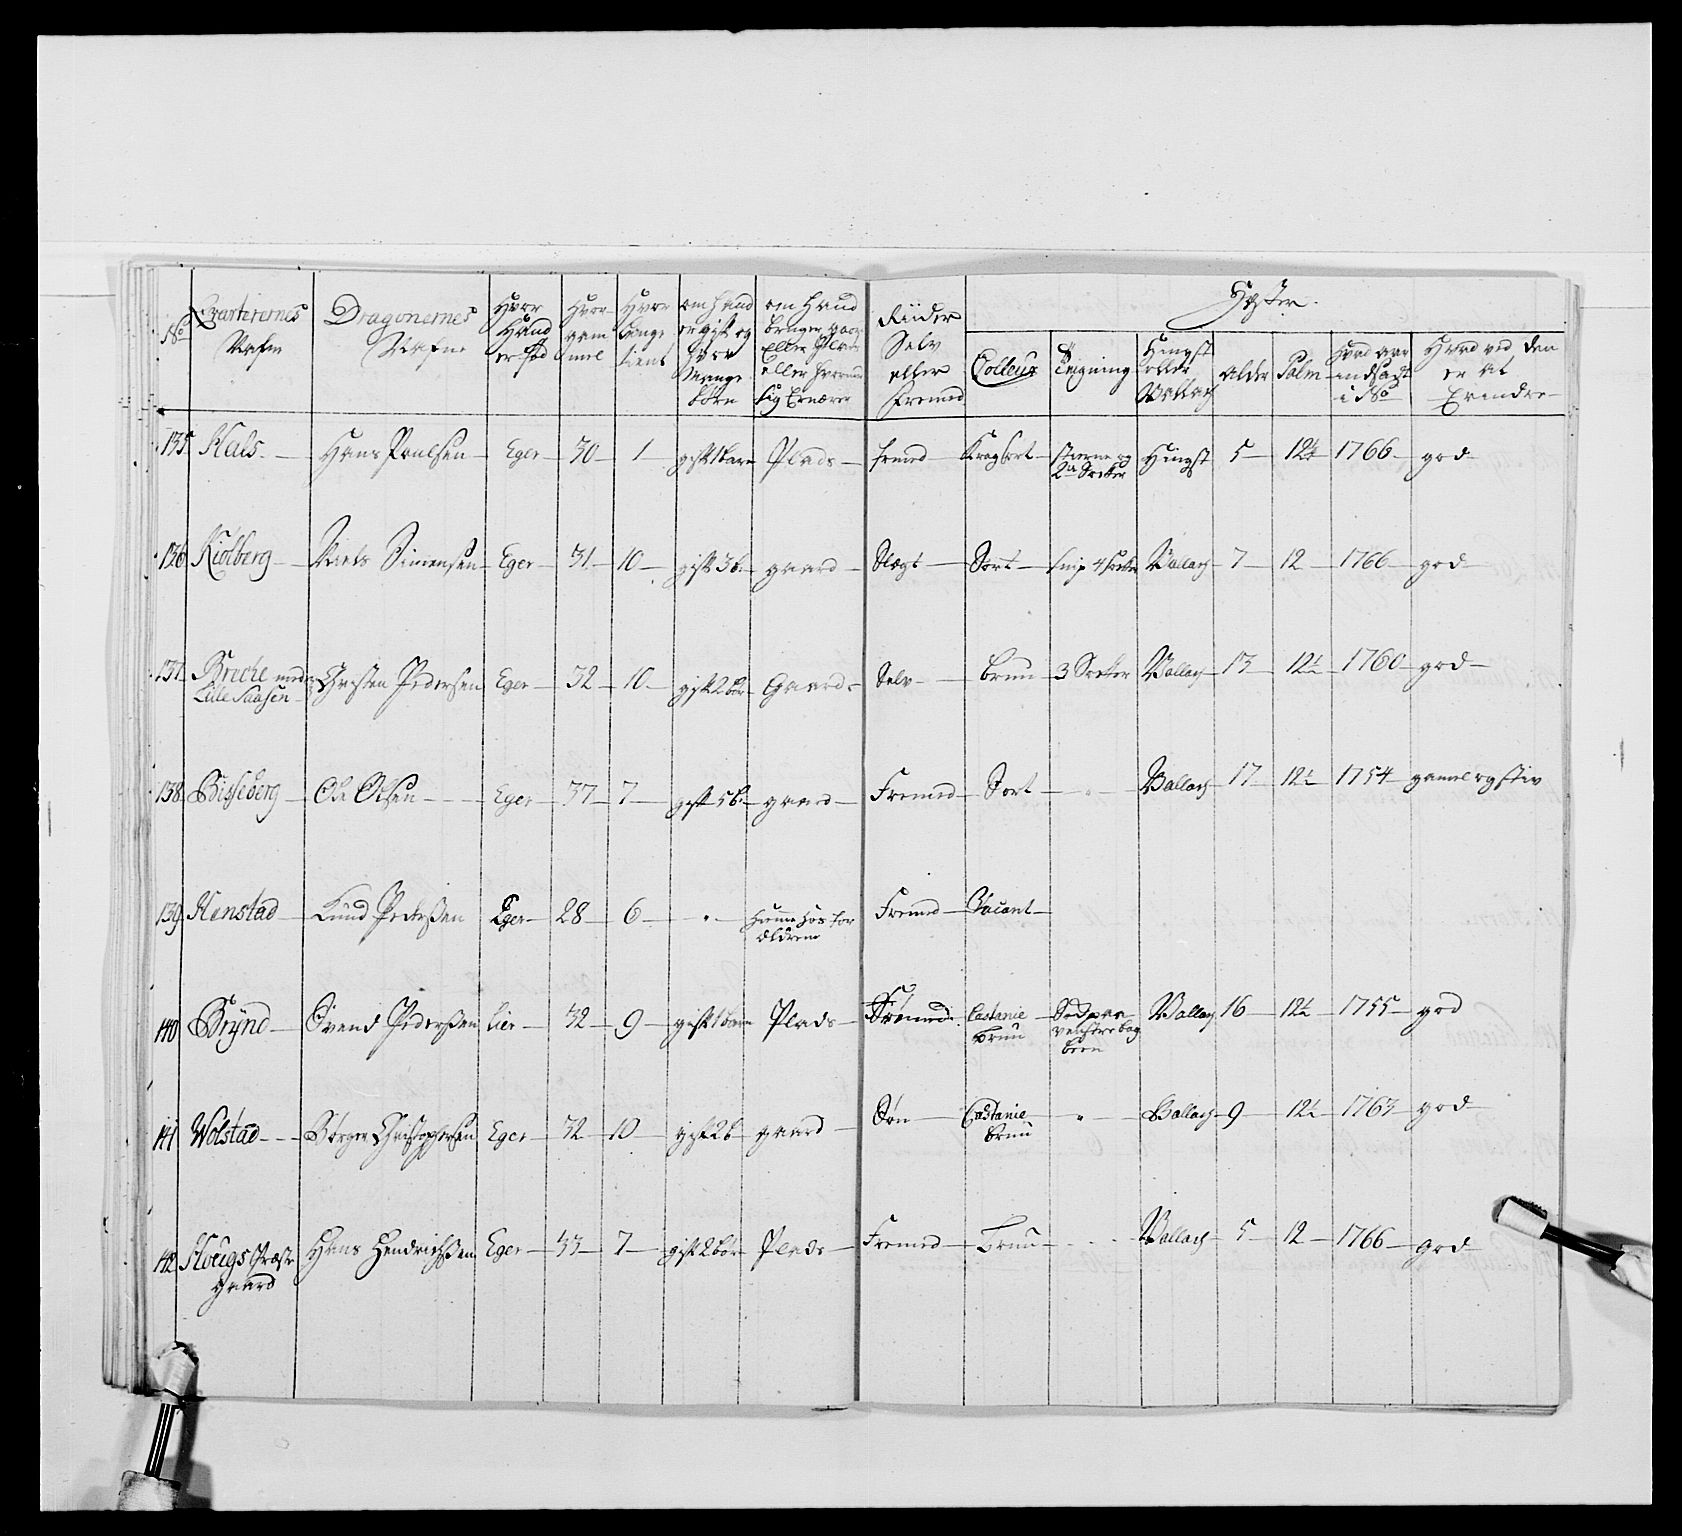 No
Qvarterernes Nafn
Dragonernes Nafne
Hvor Hand er fød
Hvor gammel
Hvor Lange tient
om hand er gift og hvor Mange børn
om Hand bruger gaard Eller Plads eller hvormed sig Ernærer
Riider Selv eller Fremed
Hester.
Colleur
Teigning
Hingst eller Vallach
Alder
Palm
Hvad aar indsadt i No
Hvad ved den er at Erindre
135 Hals - Hans Poulsen - Eger - 30 - 1 gift 1 barn Plads - fremed Kragsort - stierne og 2de Sokker Hingst 5 - 12 1/2 1766 - god
136 Kiølberg - Niels Simensen - Eger - 31 - 10 - gift 3 b. - gaard - Slegt - Sort - snip 4 Sokker Vallach 7 - 12 - 1766 - god
137 Breche med Lille Saasen - Christen Pedersen Eger - 32 - 10 - gift 2 bør - Gaard - Selv - brun - 3 Sokker Vallach - 13 - 12 1/2 - 1760 - god -
138 Bisseberg - Ole Olsen - - - Eger - 37 - 7 - gift 5 b. - gaard - Fremed - Sort - " - Vallach - 17 - 12 1/2 - 1754 - gamel og stiv
139 Henstad - Knud Pedersen Eger - 28 - 6 - " - hiemme hos forældrene Fremed - Vacant -
140 Brynd - Svend Pedersen Lier - 32 - 9 - gift 1 barn Plads - Fremed. Castanie brun Sod paa venstre bag been Vallach 16 12 1/2 - 1755 - god
141 Wolstad - - - Børger Christophersen Eger - 32 - 10 - gift 2 b - gaard - Søn - Castanie brun " Vallach - 9 - 12 1/2 - 1763 - god -
142 Hougs Præstegaard Hans Hendrichsen Eger - 33 - 7 - gift 2 bør - Plads - Fremed - brun - Vallach - 5 - 12 - 1766 - god -